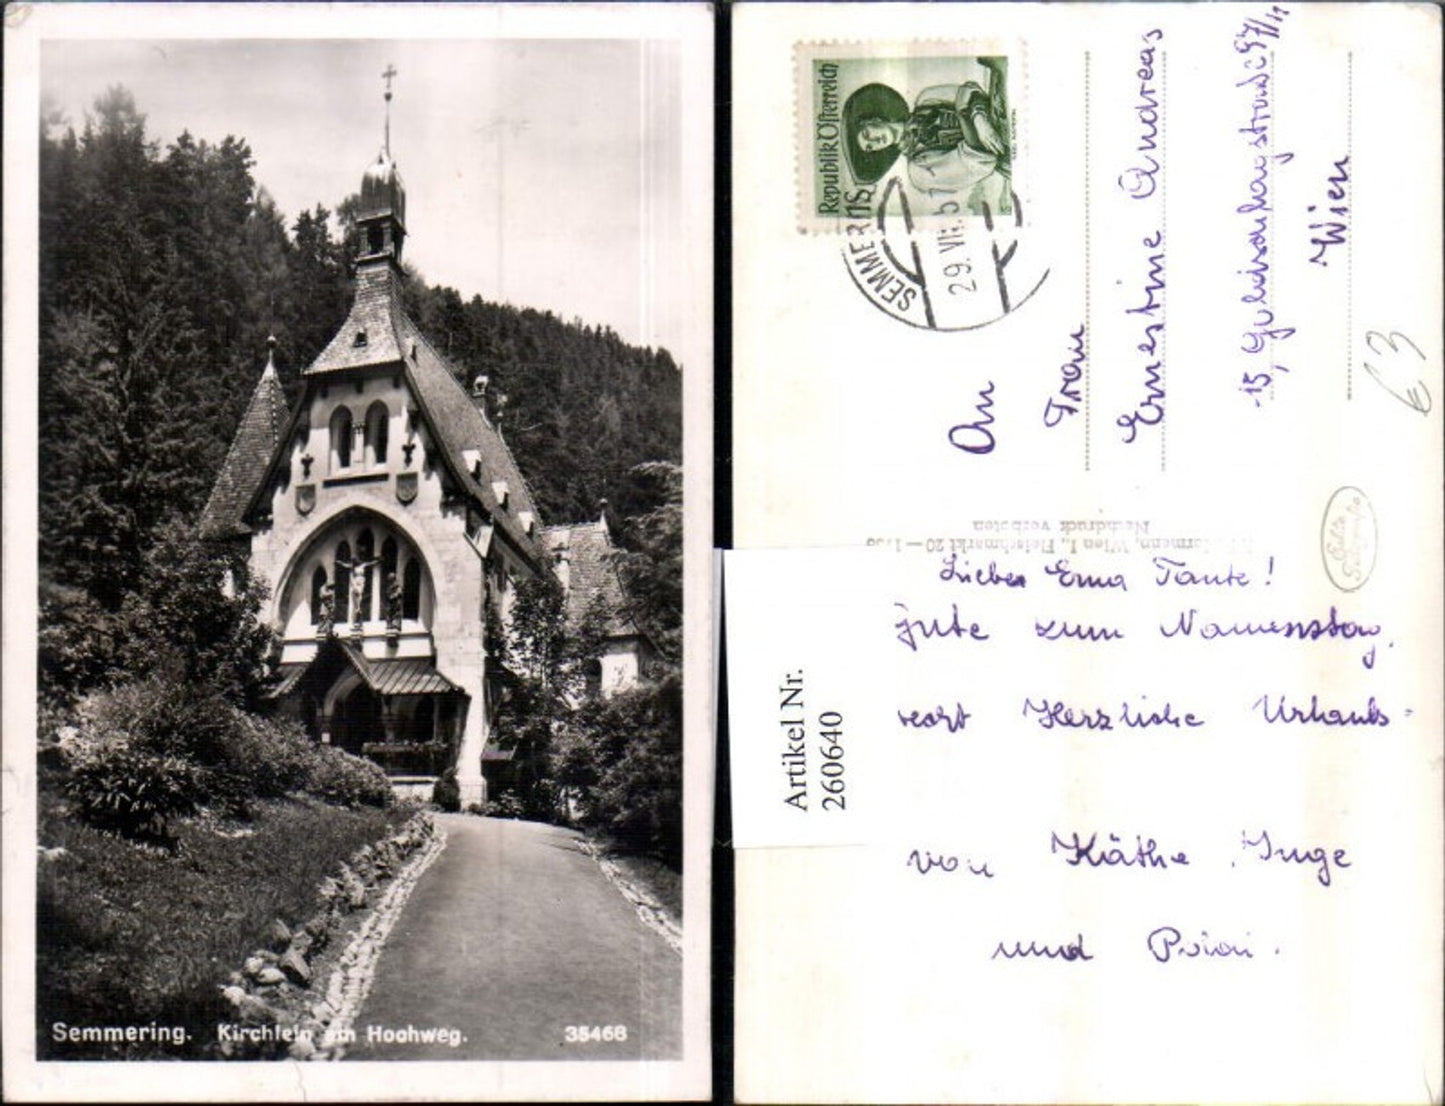 Semmering. Kirchlein am Hochweg. 35468
Republik Österreich
SEMMERING
29.VII.51
An
Frau
Ernestine Andreas
15, Wien
€ 3
Wien I., Fleischmarkt 20
Nachdruck verboten
Artikel Nr.
260640
Liebe Erna Tante!
gute zum Namenstag,
Herzliche Urlaubs-
von Käthe, Inge
und